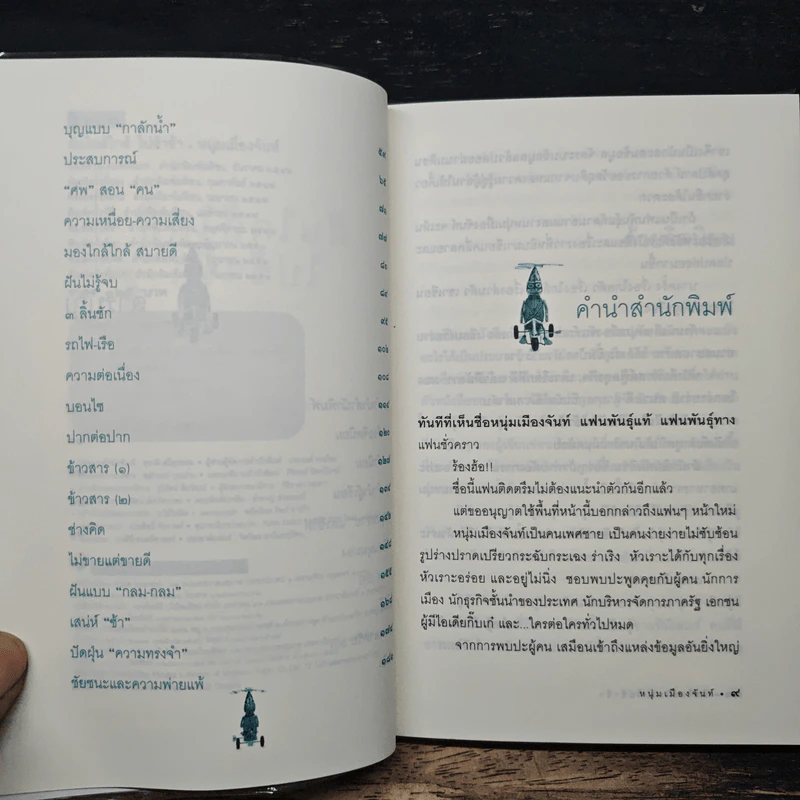 บุญแบบ “กาลักน้ำ”
ประสบการณ์ ๕๙
“ศพ” สอน “คน” ๖๕
ความเหนื่อย-ความเสี่ยง
มองใกล้ใกล้ สบายดี
ฝันไม่รู้จบ
๓ ลิ้นชัก
รถไฟ-เรือ
ความต่อเนื่อง ๑๐๘
บอนไซ
ปากต่อปาก ๑๒๐
ข้าวสาร (๑)
ข้าวสาร (๒)
ช่างคิด
ไม่ขายแต่ขายดี ๑๔๘
ฝันแบบ “กลม-กลม” ๑๕๕
เสน่ห์ “ช้า”
ปัดฝุ่น “ความทรงจำ”
ชัยชนะและความพ่ายแพ้
คำนำสำนักพิมพ์
ทันทีที่เห็นชื่อหนุ่มเมืองจันท์ แฟนพันธุ์แท้ แฟนพันธุ์ทาง
แฟนชั่วคราว
ร้องอ้อ!!
ชื่อนี้แฟนติดตรึมไม่ต้องแนะนำตัวกันอีกแล้ว
แต่ขออนุญาตใช้พื้นที่หน้านี้บอกกล่าวถึงแฟนๆ หน้าใหม่
หนุ่มเมืองจันท์เป็นคนเพศชาย เป็นคนง่ายง่ายไม่ซับซ้อน
รูปร่างปราดเปรียวกระฉับกระเฉง ร่าเริง หัวเราะได้กับทุกเรื่อง
หัวเราะอร่อย และอยู่ไม่นิ่ง ชอบพบปะพูดคุยกับผู้คน นักการ
เมือง นักธุรกิจชั้นนำของประเทศ นักบริหารจัดการภาครัฐ เอกชน
ผู้มีไอเดียกิ๊บเก๋ และ...ใครต่อใครทั่วไปหมด
จากการพบปะผู้คน เสมือนเข้าถึงแหล่งข้อมูลอันยิ่งใหญ่
หนุ่มเมืองจันท์ • ๙